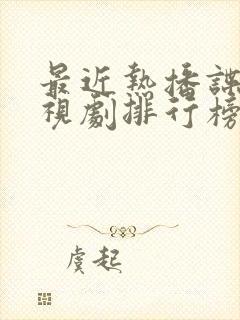 最近熱播諜
視劇排行榜
虞起